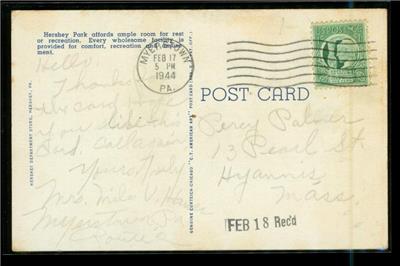 Hershey Park affords ample room for rest
or recreation. Every wholesome facility is
provided for comfort, recreation and
ment.
Hello
Thanks
the card hope
you
Yours Truly
Mrs. Milo V.
Myerstown Pa
Route 2
HERSHEY DEPARTMENT STORE, HERSHEY, PA.
GENUINE CURTEICH-CHICAGO "C.T. AMERICAN ART"
MYERSTOWN
FEB 17
5 PM
1944
PA.
POST CARD
Percy Palmer
13 Pearl St.
Hyannis
Mass.
FEB 18 Rec'd